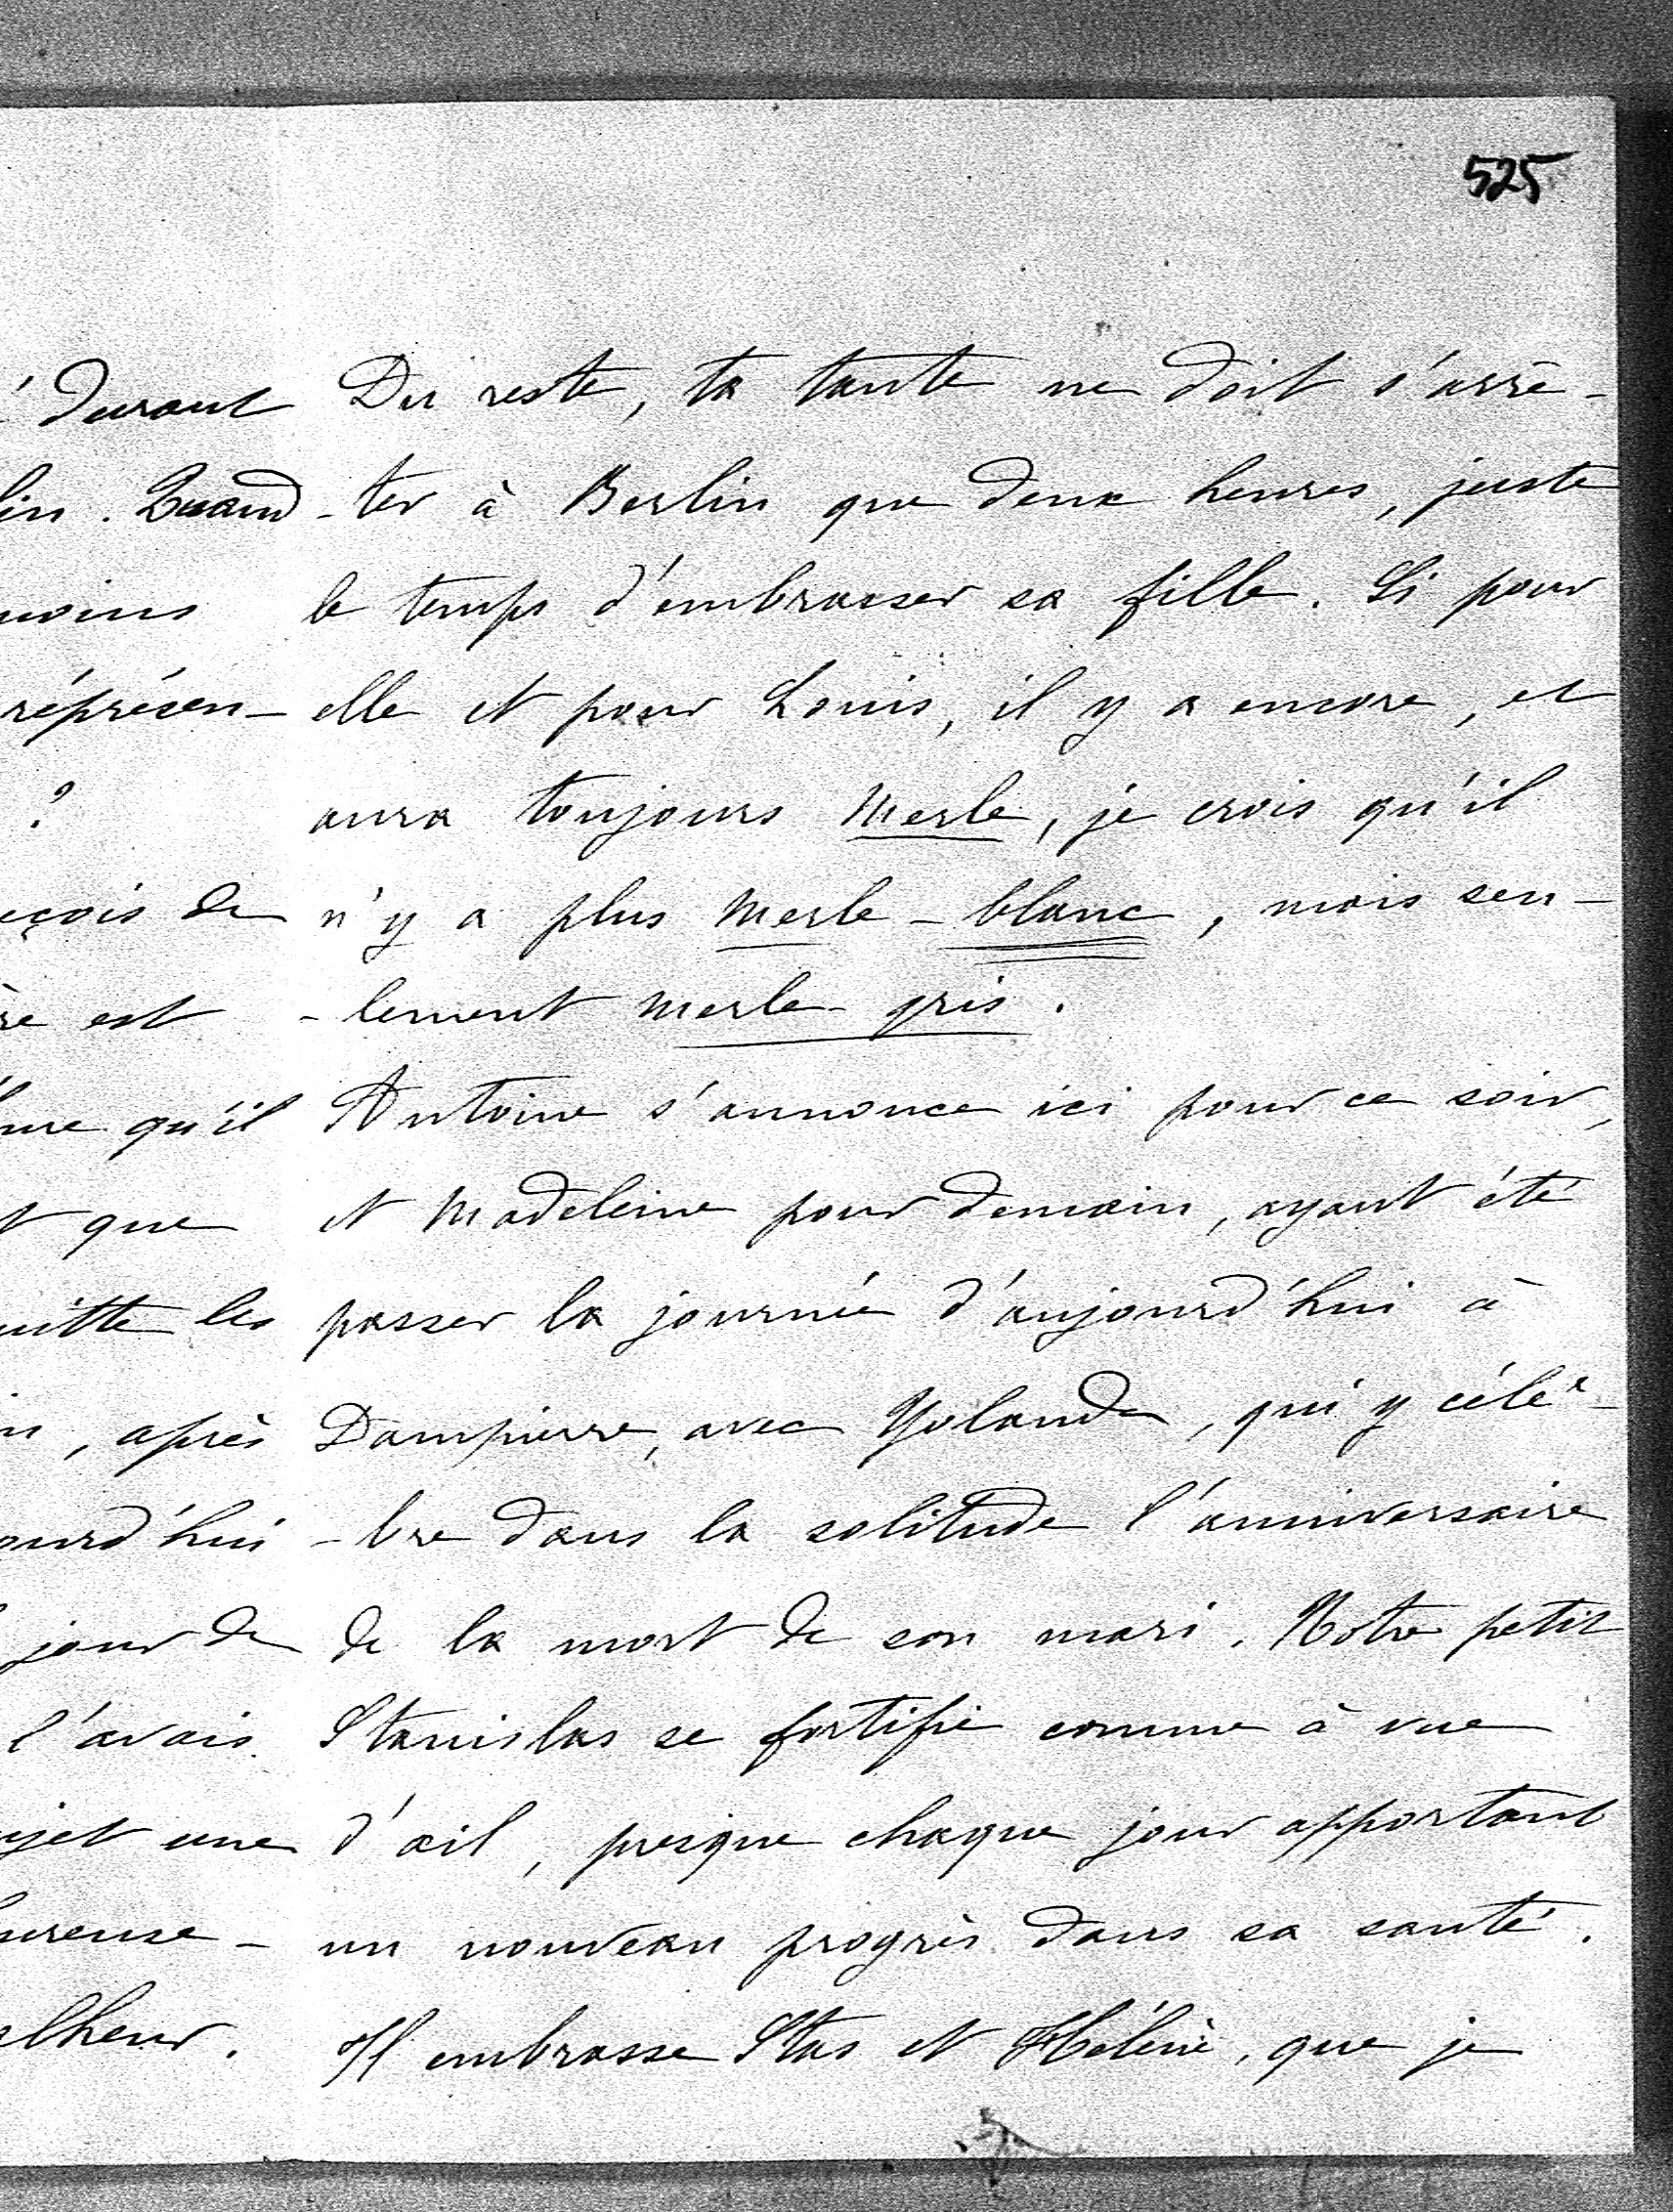 525
durant
lin. Quand
moins
réprésen-
?
eçois de
re est
me qu'il
t que
uitte les
n, après
ourd'hui
jour de
l'avais
ujet une
ureuse-
alheur.
Du reste, ta tante ne doit s'arrê-
-ter à Berlin que deux heures, juste
le temps d'embrasser sa fille. Si pour
elle et pour Louis, il y a encore, et
aura toujours Merle, je crois qu'il
n'y a plus Merle-blanc, mais seu-
-lement Merle-gris.
Antoine s'annonce ici pour ce soir,
et Madeleine pour demain, ayant été
passer la journée d'aujourd'hui à
Dampierre, avec Yolande, qui y célè-
-bre dans la solitude l'anniversaire
de la mort de son mari. Notre petit
Stanislas se fortifie comme à vue
d'œil, presque chaque jour apportant
un nouveau progrès dans sa santé.
Il embrasse Stas et Hélène, que je